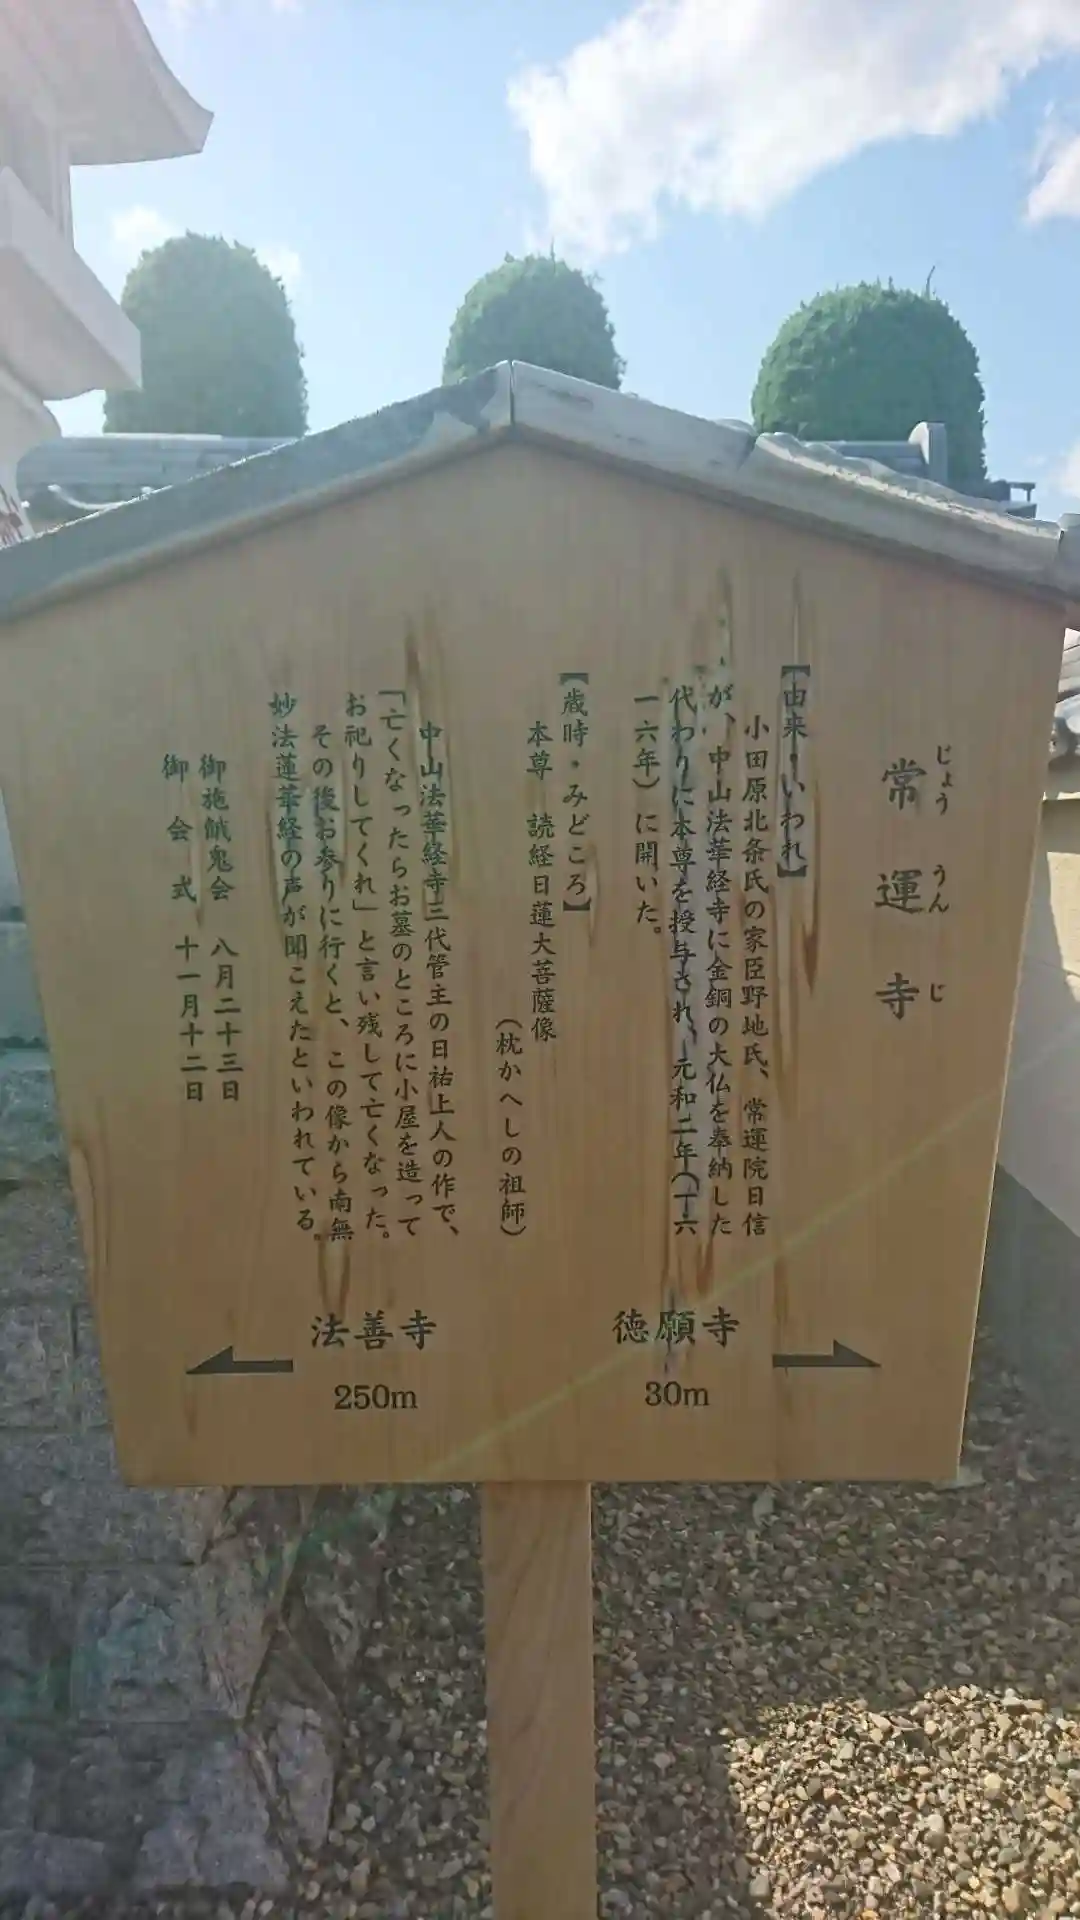 常運寺
じょううんじ
【由来・いわれ】
小田原北条氏の家臣野地氏、常運院日信
が、中山法華経寺に金銅の大仏を奉納した
代わりに本尊を授与され、元和二年(一六
一六年)に開いた。
【歳時・みどころ】
本尊 読経日蓮大菩薩像
(枕かへしの祖師)
中山法華経寺三代管主の日祐上人の作で、
「亡くなったらお墓のところに小屋を造って
お祀りしてくれ」と言い残して亡くなった。
その後お参りに行くと、この像から南無
妙法蓮華経の声が聞こえたといわれている。
御施餓鬼会 八月二十三日
御会式 十一月十二日
徳願寺
30m
法善寺
250m